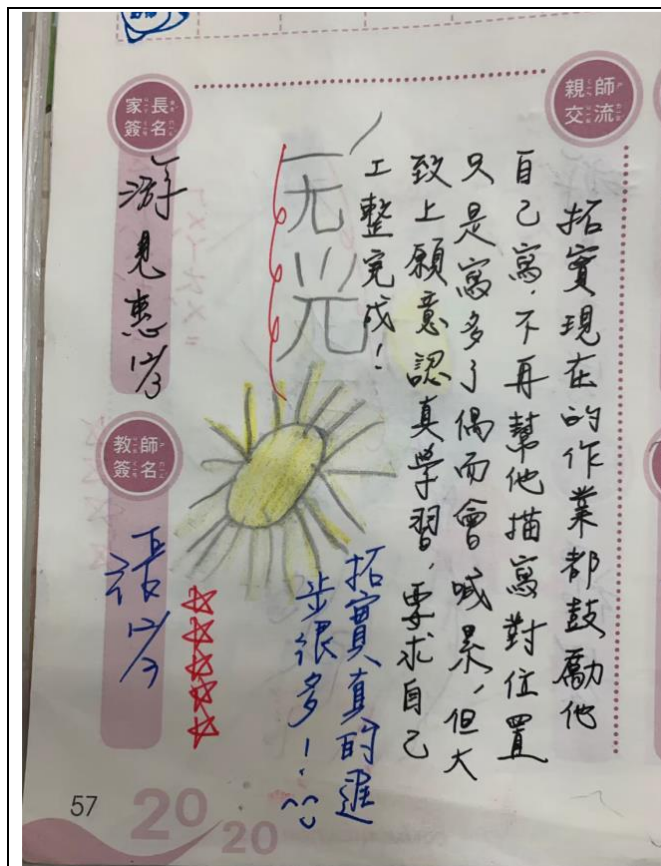 親師交流
拓實現在的作業都鼓勵他
自己寫，不再幫他描寫對位置
只是寫多了偶而會喊累，但大
致上願意認真學習，要求自己
工整完成！
拓實真的進
步很多！
家長簽名
游見惠 12/3
教師簽名
張 12/3
57
2020